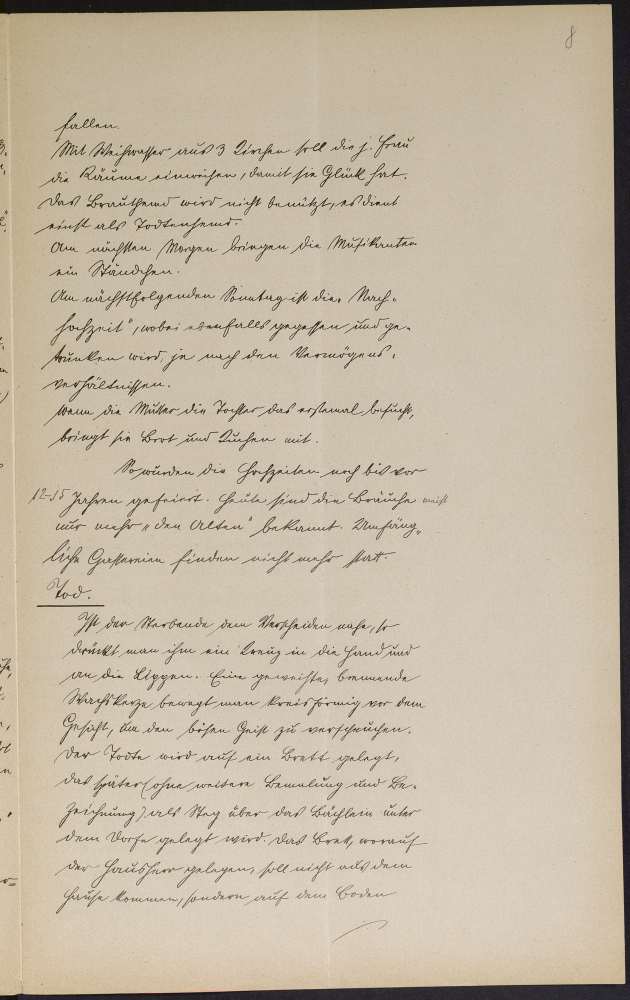 8
fallen.
Mit Weihwasser aus 3 Kirchen soll die j. Frau
die Räume einweihen, damit sie Glück hat.
Das Brauthemd wird nicht benützt, es dient
einst als Todtenhemd.
Am nächsten Morgen bringen die Musikanten
ein Ständchen.
Am nächstfolgenden Sonntag ist die „Nach-
hochzeit", wobei ebenfalls gegessen und ge-
trunken wird, je nach den Vermögens-
verhältnissen.
Wenn die Mutter die Tochter das erstemal besucht,
bringt sie Brot und Kuchen mit.
So wurden die Hochzeiten noch bis vor
12-15 Jahren gefeiert. Heute sind die Bräuche meist
nur mehr „den Alten" bekannt. Umfäng-
liche Gastereien finden nicht mehr statt.
Tod.
Ist der Sterbende dem Verscheiden nahe, so
drückt man ihm ein Kreuz in die Hand und
an die Lippen. Eine geweihte, brennende
Wachskerze bewegt man kreisförmig vor dem
Gesicht, um den bösen Geist zu verscheuchen.
Der Todte wird auf ein Brett gelegt,
das später (ohne weitere Bemalung und Be-
zeichnung) als Steg über das Bächlein unter
dem Dorfe gelegt wird. Das Brett, worauf
der Hausherr gelegen, soll nicht aus dem
Hause kommen, sondern auf dem Boden